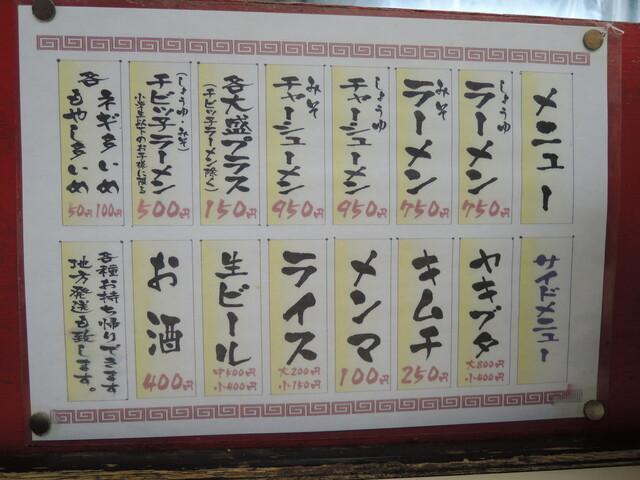 メニュー
しょうゆ
ラーメン
750円
みそ
ラーメン
750円
しょうゆ
チャーシューメン
950円
みそ
チャーシューメン
950円
各大盛プラス
(チビッ子ラーメン除く)
150円
(しょうゆ・みそ)
チビッ子ラーメン
小学生以下のお子様に限る
500円
各
ネギ多いめ
100円
もやし多いめ
50円
サイドメニュー
ヤキブタ
大800円
小400円
キムチ
250円
メンマ
100円
ライス
大200円
小150円
生ビール
小400円
お酒
400円
各種お持ち帰りできます
地方発送も致します。